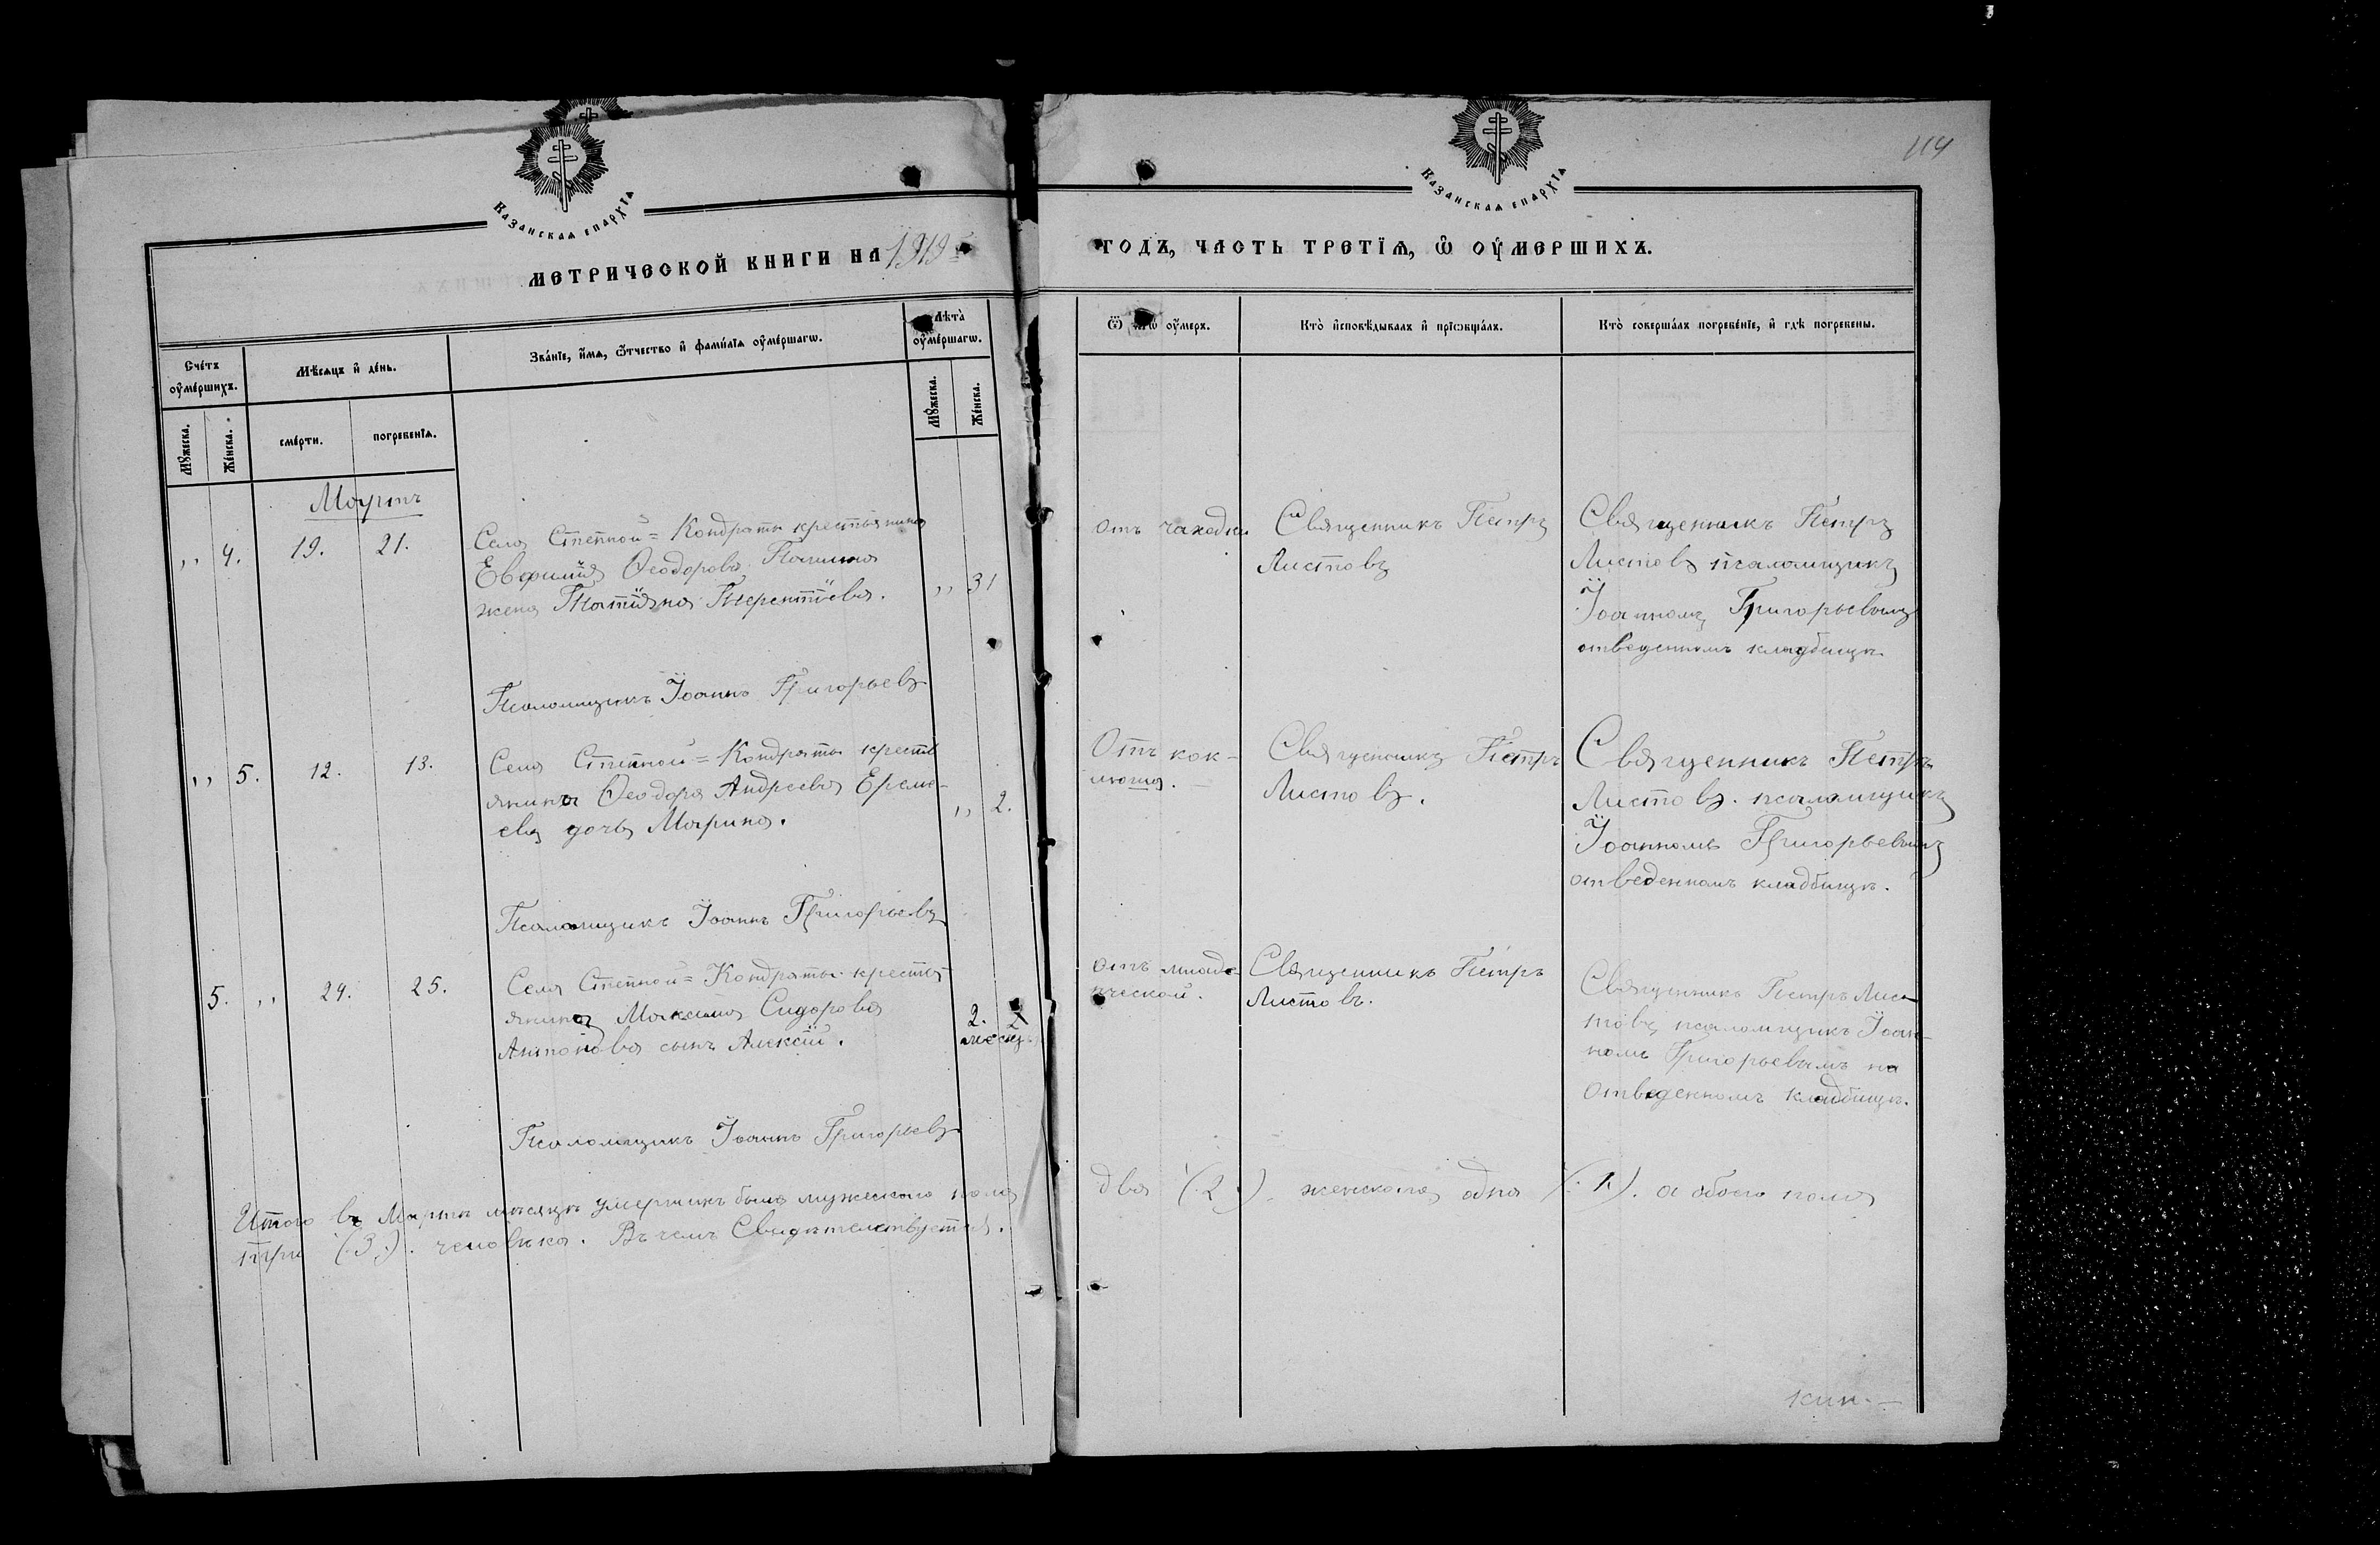 114
КАЗАНСКАѦ ЕПАРХІѦ
КАЗАНСКАѦ ЕПАРХІѦ
МЕТРИЧЕСКОЙ КНИГИ НА 1919
ГОДЪ, ЧАСТЬ ТРЕТЇѦ, Ѽ ОУ҆МЕРШИХЪ.
Сче́тъ оу҆ме́ршихъ.
Мꙋ́жеска.
Же́нска.
Мѣ́сѧцъ и҆ де́нь.
сме́рти.
погребенїѧ.
Зва́нїе, и҆́мѧ, ѻ҆́тчество и҆ фами́лїѧ оу҆ме́ршагѡ.
Лѣ́та̀ оу҆ме́ршагѡ.
Мꙋ́жеска.
Же́нска.
Ѿ чегѡ̀ оу҆́меръ.
Кто̀ и҆сповѣ́дывалъ и҆ прїѡбща́лъ.
Кто̀ соверша́лъ погребе́нїе, и҆ гдѣ̀ погребены.
Мартъ
,, 4. 19. 21.
Села Степной=Кондраты крестьянина
Евфимія Ѳеодорова
жена Татіяна Терентіева.
,, 31
отъ чаходки
Священникъ Петръ
Листовъ
Священникъ Петръ
Листовъ псаломщикъ
Іоанномъ Григорьевымъ
отведенномъ кладбищѣ.
Псаломщикъ Іоаннъ Григорьевъ
,, 5. 12. 13.
Села Степной=Кондраты кресть
янина Ѳеодора Андреева Ереме-
ева дочь Марина.
,, 2.
Отъ кок-
люша.
Священникъ Петръ
Листовъ.
Священникъ Петръ
Листовъ. псаломщикъ
Іоанномъ Григорьевымъ
отведенномъ кладбищѣ.
Псаломщикъ Іоаннъ Григорьевъ
5. ,, 24. 25.
Села Степной=Кондраты кресть-
янина Максима Сидорова
Антонова сынъ Алексій.
2. 2
месяц
отъ младе-
нческой.
Священникъ Петръ
Листовъ.
Священникъ Петръ Лис-
товъ псаломщикъ Іоан-
номъ Григорьевымъ на
отведенномъ кладбищѣ.
Псаломщикъ Іоаннъ Григорьевъ
Итого въ Мартѣ мѣсяцѣ умершихъ было мужескаго пола
два (2.). женскаго одна (.1.). а обоего пола
три (.3.). человѣка. Въ чемъ Свидѣтельствуется.